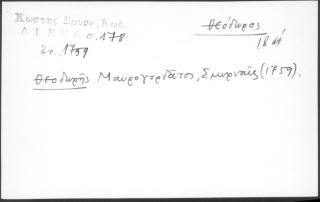 Κωστῆς Σμυρν. Κωδ.
Α Ι Ε Ε Θ σ. 178
ἔτ. 1759
Θεόδωρος
18 αἰ
Θεοδωρῆς Μαυρογορδᾶτος, Σμυρναῖος (1759).